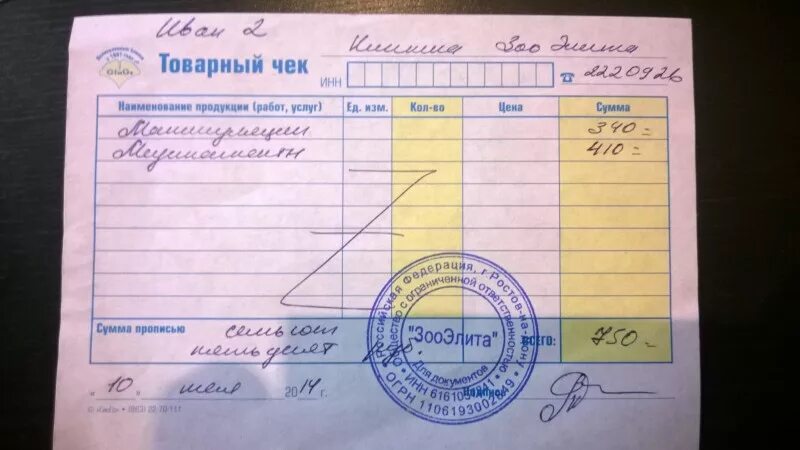 Иван 2
Клиника Зоо Элита
Товарный чек
ИНН
☎ 2220926
Наименование продукции (работ, услуг) Ед. изм. Кол-во Цена Сумма
Манипуляции 340=
Медикаменты 410=
Сумма прописью семьсот
пятьдесят руб.
ВСЕГО: 750=
"10" июля 2014 г.
Подпись
Российская Федерация, г. Ростов-на-Дону
Общество с ограниченной ответственностью
"ЗооЭлита"
Для документов